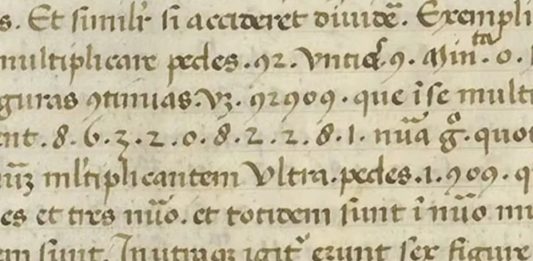 s. Et simil'r si accideret dividē. Exempli
multiplicare pedes .92. Untia .9. Minᵗᵃ .0.
guras ꝯtinuas. Vꝫ. 92909. que ī se multi
ent. 8. 6. 3. 2. 0. 8. 2. 2. 8. 1. nūa gᵒ. quot
ml'tiplicantem Ultra. pedes. 1. 909. q
es et tres nūo. et totidem sunt ī nūo mu
em sunt. In utraqꝫ igit' erunt sex figure